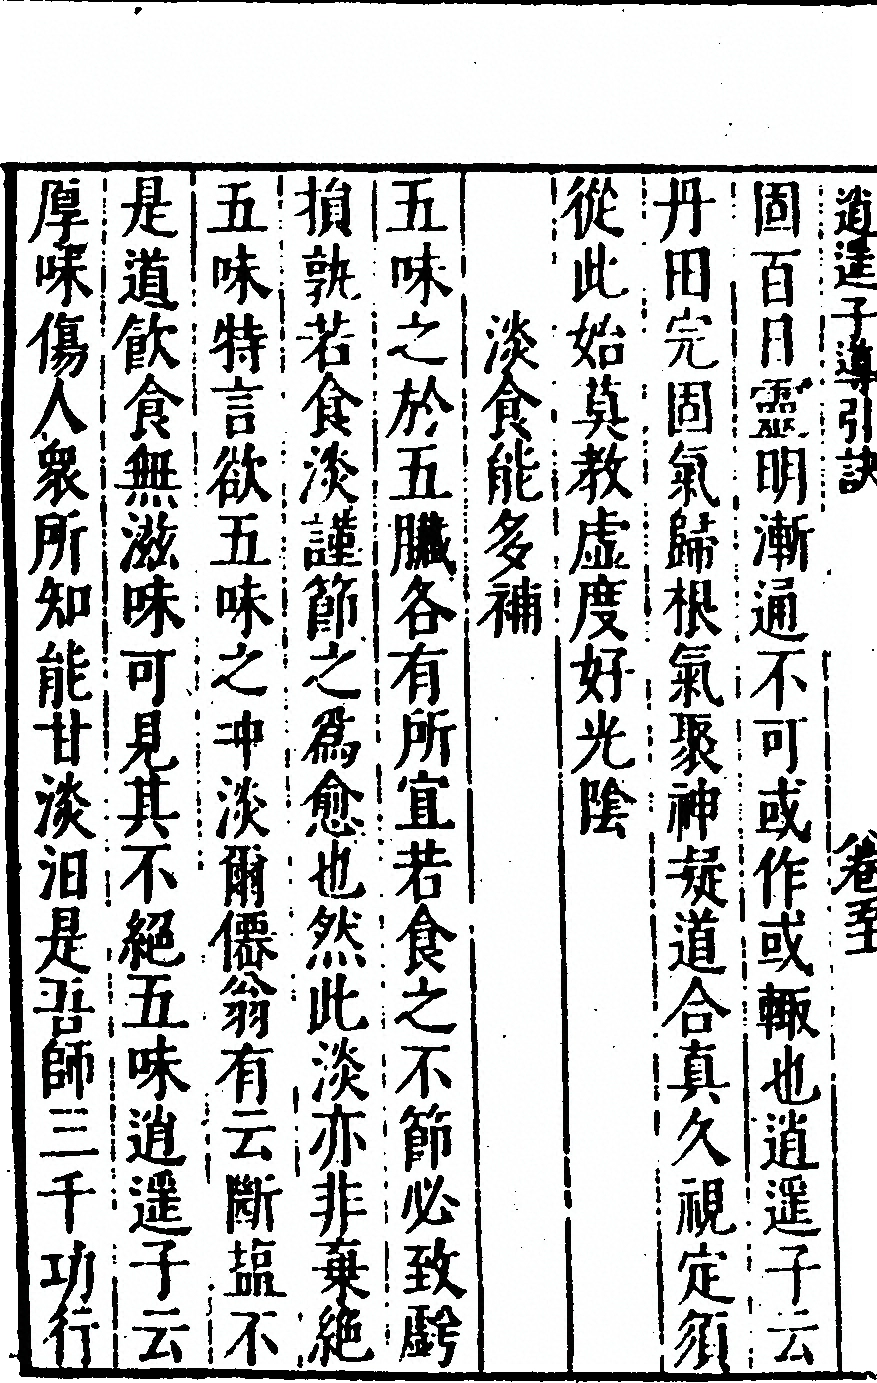 逍遥子導引訣
卷五
固百日靈明漸通不可或作或輟也逍遥子云
丹田完固氣歸根氣聚神凝道合真久視定須
從此始莫教虛度好光陰
淡食能多補
五味之於五臟各有所宜若食之不節必致虧
損孰若食淡謹節之爲愈也然此淡亦非棄絶
五味特言欲五味之冲淡爾僊翁有云斷塩不
是道飮食無滋味可見其不絕五味逍遥子云
厚味傷人衆所知能甘淡泊是吾師三千功行